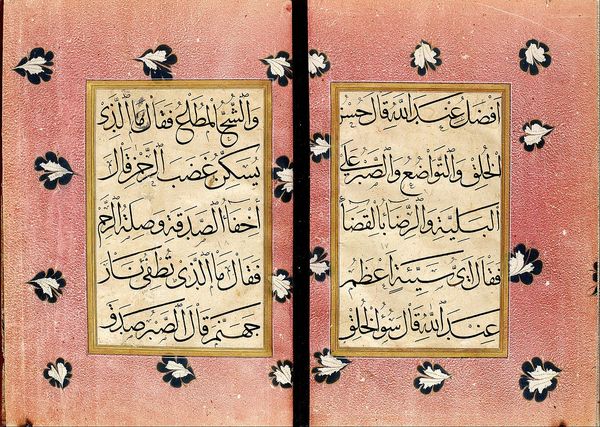 أفضل عند الله قال حسن
الخلق والتواضع والصبر على
البلية والرضا بالقضاء
فقال أي سيئة أعظم
عند الله قال سوء الخلق
والشح المطاع فقال ما الذي
يسكن غضب الرحمن قال
أخفا الصدقة وصلة الرحم
فقال ما الذي تطفي نار
جهنم قال الصبر